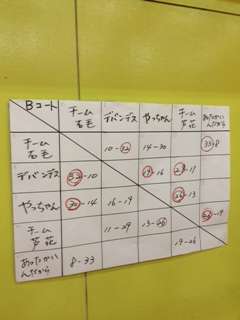 Bコート チーム石毛 デバンデス やっちゃん チーム芦花 あったかいんだから
チーム石毛 10-32 14-30 33-8
デバンデス 32-10 19-16 29-11
やっちゃん 30-14 16-19 26-13
チーム芦花 11-29 13-26 -19
あったかいんだから 8-33 19-26